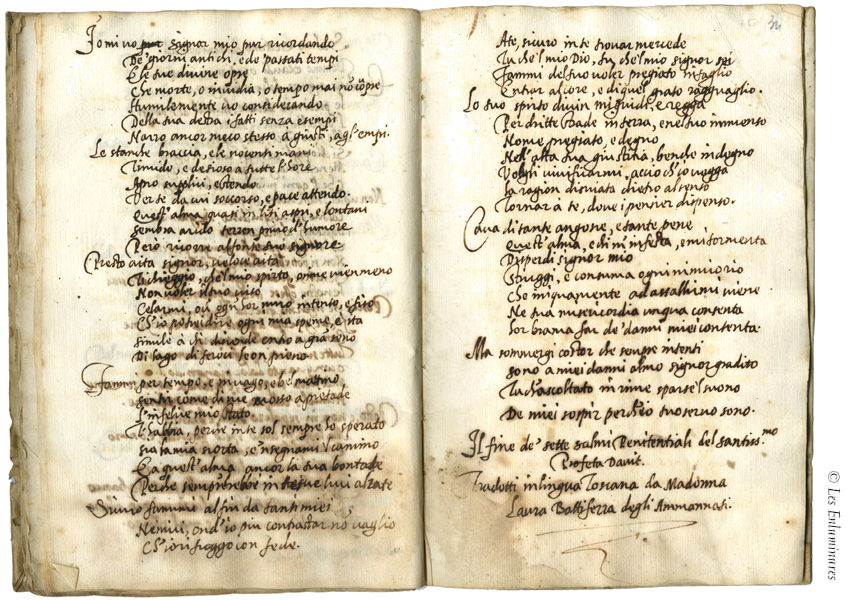 Io mi vo pur signor mio pur ricordando
De' giorni antichi, e de' passati tempi
E le tue divine opre
Che morte, o invidia, o tempo mai nō cōpre
Humilmente vo considerando
Della tua destra i fatti senza esempi
Narro ancor meco stesso à giusti, a gl'empi.
Le stanche braccia, e le nocenti mani
Timido, e desioso a tutte l'hore
Apro supplice, e stendo
Ver te da cui soccorso, e pace attendo.
Quest'alma quasi in lidi aspri, e lontani
Sembra arido terren privo d'humore
Però ricorre al fonte suo signore
Presto aita signor, veloce aita
Ti chieggio, che'l mio spirto, oime vien meno
Non voler il tuo viso
Celarmi, ov' ogn'hor miro intento, e fiso
Ch'io potrei dire ogni mia speme, e ita
Simile à chi discende entro a gran seno
Di lago di feroci pieno
Fammi per tempo, e in vago, e bel mattino
Sentir come di me mosso a pietade
l'infelice mio stato
T'habbia, perche in te sol sempre hò sperato
Sia la mia scorta, e insegnami'l camino
E a quest'alma ancor la tua bontade
Perche sempre hebbe in te sue luci alzate
Divino fammi al fin da tanti miei
Nemici, ond'io piu contrastar nō vaglio
Ch'io rifuggo con fede.
32
A te, sicuro in te trovar mercede
Tu che'l mio Dio, tu che'l mio signor sei
Fammi del tuo voler pregiato intaglio
Entr'al core, e di quel grato ragguaglio.
Lo tuo spirto divin mi guidi, e regga
Per dritte strade in terra, e nel tuo immenso
Nome pregiato, e degno
Nell'alta tua giustitia, benche indegno
Vogli vivificarmi, acciò ch'io vegga
la ragion disviata dietro al senso
Tornar à te, dove i pensier dispenso.
Cava di tante angosce, e tante pene
Quest'alma, e chi m'infesta, e mi tormenta
Disperdi signor mio
Struggi, e consuma ogni nimico rio
Che iniquamente ad assalirmi viene
Ne tua misericordia unqua consenta
Lor brama far de' danni miei contenta.
Ma sommergi costor che sempre intenti
sono a miei danni almo signor gradito
Tu ch'ascoltato in rime sparse'l suono
De miei sospir perch'io tuo servo sono.
Il fine de' sette salmi Penitentiali del santiss.mo
Profeta Davit.
Tradotti in lingua Toscana da Madonna
Laura Battiferra degli Ammannati.
© Les Enluminures